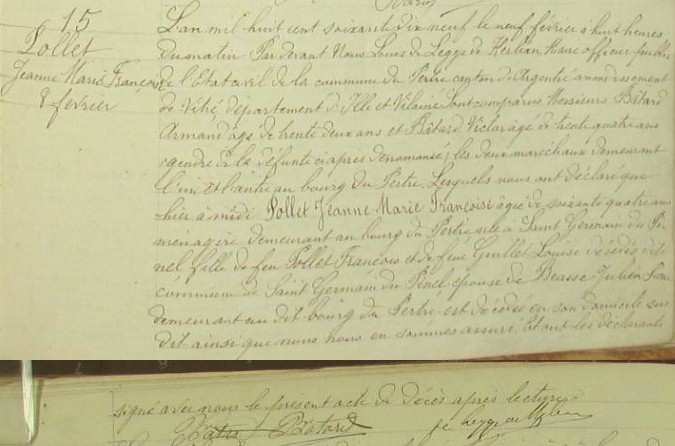 15
Pollet
Jeanne Marie Françoise
8 février
L'an mil huit cent soixante dix neuf le neuf février à huit heures
du matin Par devant Nous Louis de Légge de Kerlean Maire officier public
de l'Etat civil de la commune du Pertre canton d'Argentré arrondissement
de Vitré, département d'Ille et Vilaine sont comparus Messieurs Bâtard
Armand âgé de trente deux ans et Bâtard Victor âgé de trente quatre ans
(gendre de la défunte ci après dénommée) les deux maréchaux demeurant
l'un et l'autre au bourg du Pertre, Lesquels nous ont déclaré que
hier à midi Pollet Jeanne Marie Françoise âgée de soixante quatre ans
ménagère demeurant au bourg du Pertre née à Saint Germain du Pi
nel, fille de feu Pollet François et de feue Guillet Louise décédés dite
commune de Saint Germain du Pinel, épouse de Beasse Julien
demeurant au dit bourg du Pertre, est décédée en son domicile sus
dit ainsi que nous nous en sommes assuré. Et ont les déclarants
signé avec nous le présent acte de décès après lecture
Bâtard